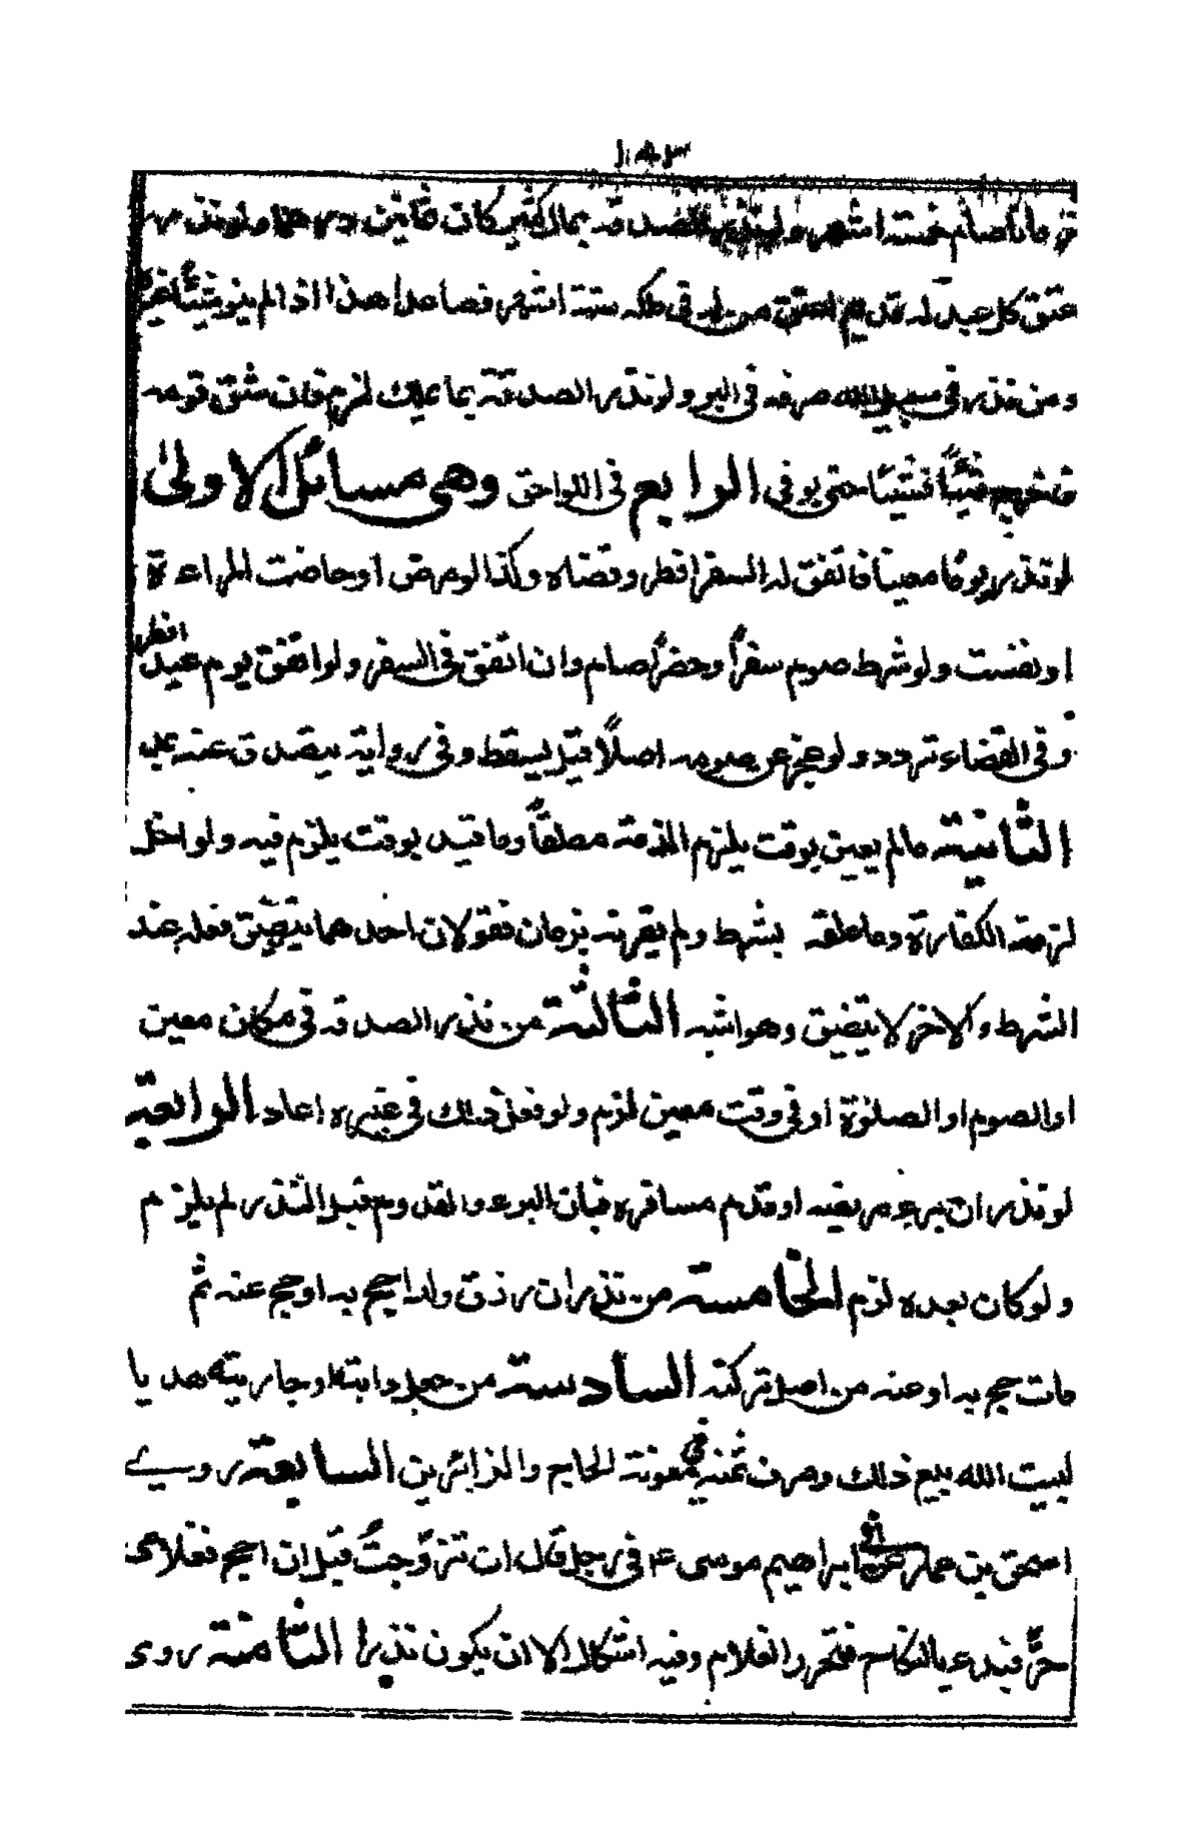 زمانا صام خمسة اشهر ولو نذر الصدقة بمال كثير كان ثمانين درهما ولو نذر
عتق كل عبد له قديم اعتق من له فى ملكه ستة اشهر فصاعدا هذا اذا لم ينو شيئًا غيره
ومن نذر فى سبيل الله صرفه فى البر ولو نذر الصدقة بما يملك لزم فان شق قومه
فتخرج شيئًا فشيئًا حتى يوفى الرابع فى اللواحق وهى مسائل الاولى
لو نذر يومًا معينا فاتفق له السفر افطر وقضاه وكذا لو مرض او حاضت المراءة
او نفست ولو شرط صومه سفرًا وحضرًا صام وان اتفق فى السفر ولو اتفق يوم عيد افطر
وفى القضاء تردد ولو عجز عن صومه اصلًا قيل يسقط وفى رواية يتصدق عنه بمد
الثانية مالم يعين بوقت يلزم الذمة مطلقًا وما قيد بوقت يلزم فيه ولو اخل
لزمه الكفارة وما علقه بشرط ولم يقرنه بزمان فقولان احدهما يتضيق فعله عند
الشرط والاخر لا يتضيق وهو اشبه الثالثة من نذر الصدقة فى مكان معين
او الصوم او الصلوة او فى وقت معين لزم ولو فعل ذلك فى غيره اعاد الرابعة
لو نذر ان برء مريضه او قدم مسافره فبان البرء والقدوم قبل النذر لم يلزم
ولو كان بعده لزم الخامسة من نذر ان رزق ولدا يحج به او حج عنه ثم
مات حج به او عنه من اصل تركته السادسة من جعل دابته او جاريته هديا
لبيت الله بيع ذلك وصرف ثمنه فى معونة الحاج والزائرين السابعة روى
اسحق بن عمار عن ابى ابراهيم موسى ع فى رجل قال ان تزوجتُ قبل ان احج فغلامى
حرٌّ فبدء بالنكاح فتحرر الغلام وفيه اشكال الا ان يكون نذرا الثامنة روى